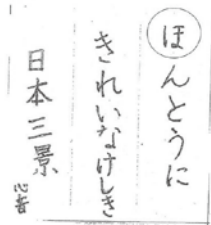 ほんとうに
きれいなけしき
日本三景
心音